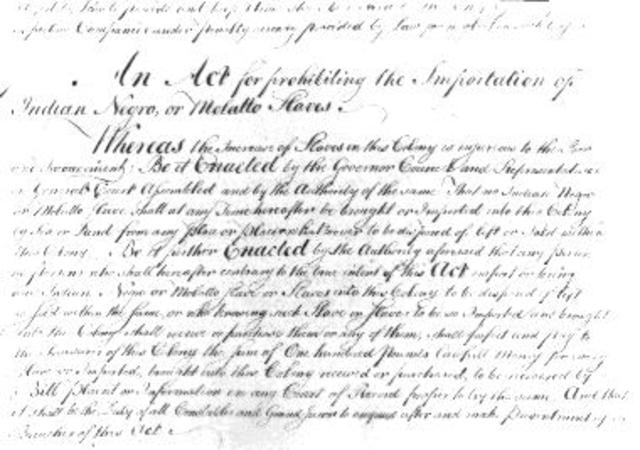 Companies under penalty provided by Law
An Act for prohibiting the Importation of
Indian Negro, or Molatto Slaves.
Whereas the Increase of Slaves in this Colony is injurious to the Poor
and Inconvenient; Be it Enacted by the Governor Council and Representatives
in General Court Assembled and by the Authority of the same That no Indian Negro
or Molatto Slave shall at any Time hereafter be brought or Imported into this Colony
by Sea or Land from any Place or Places whatsoever to be disposed of left or Sold within
this Colony. Be it further Enacted by the Authority aforesaid that any person
or persons who shall hereafter contrary to the true intent of this Act import or bring
any Indian Negro or Molatto Slave or Slaves into this Colony to be disposed of left
or sold within the same, or who knowing such Slave or Slaves to be so Imported and brought
into the Colony shall receive or purchase them or any of them, shall forfeit and pay to
the Treasurer of this Colony the sum of One hundred pounds Lawfull Money for every
Slave so Imported, brought into this Colony received or purchased, to be recovered by
Bill plaint or Information in any Court of Record proper to try the same. And that
it shall be the Duty of all Constables and Grand Jurors to enquire after and make Presentment of
Breaches of this Act.